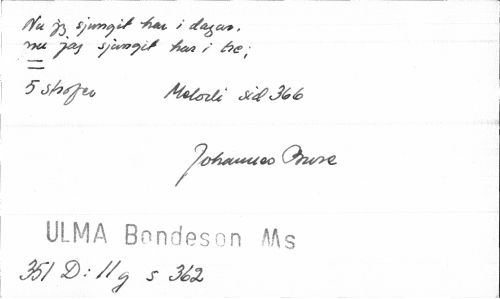 Nu jg sjungit har i dagar.
nu jag sjungit har i tre;
5 strofer Melodi sid 366
Johannes Bure
ULMA Bondeson Ms
351 D: 11 g s 362